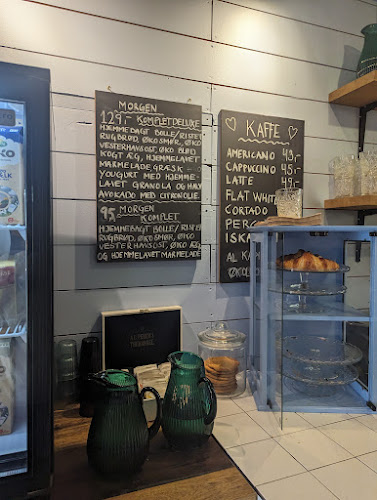 MORGEN
129,- KOMPLET DELUXE
HJEMMEBAGT BOLLE/RISTET
RUGBRØD, ØKO SMØR, ØKO
VESTERHAVSOST, ØKO BLØD
KOGT ÆG, HJEMMELAVET
MARMELADE GRÆSK
YOUGURT MED HJEMME-
LAVET GRANOLA OG HALV
AVOKADO MED CITRONOLIE
95,- MORGEN
KOMPLET
HJEMMEBAGT BOLLE/RISTET
RUGBRØD, ØKO SMØR, ØKO
VESTERHAVSOST, ØKO ÆG
OG HJEMMELAVET MARMELADE
KAFFE
AMERICANO 43,-
CAPPUCCINO 45,-
LATTE 49,-
FLAT WHIT
CORTADO
PERC
ISKA
AL KA
ØKOLO